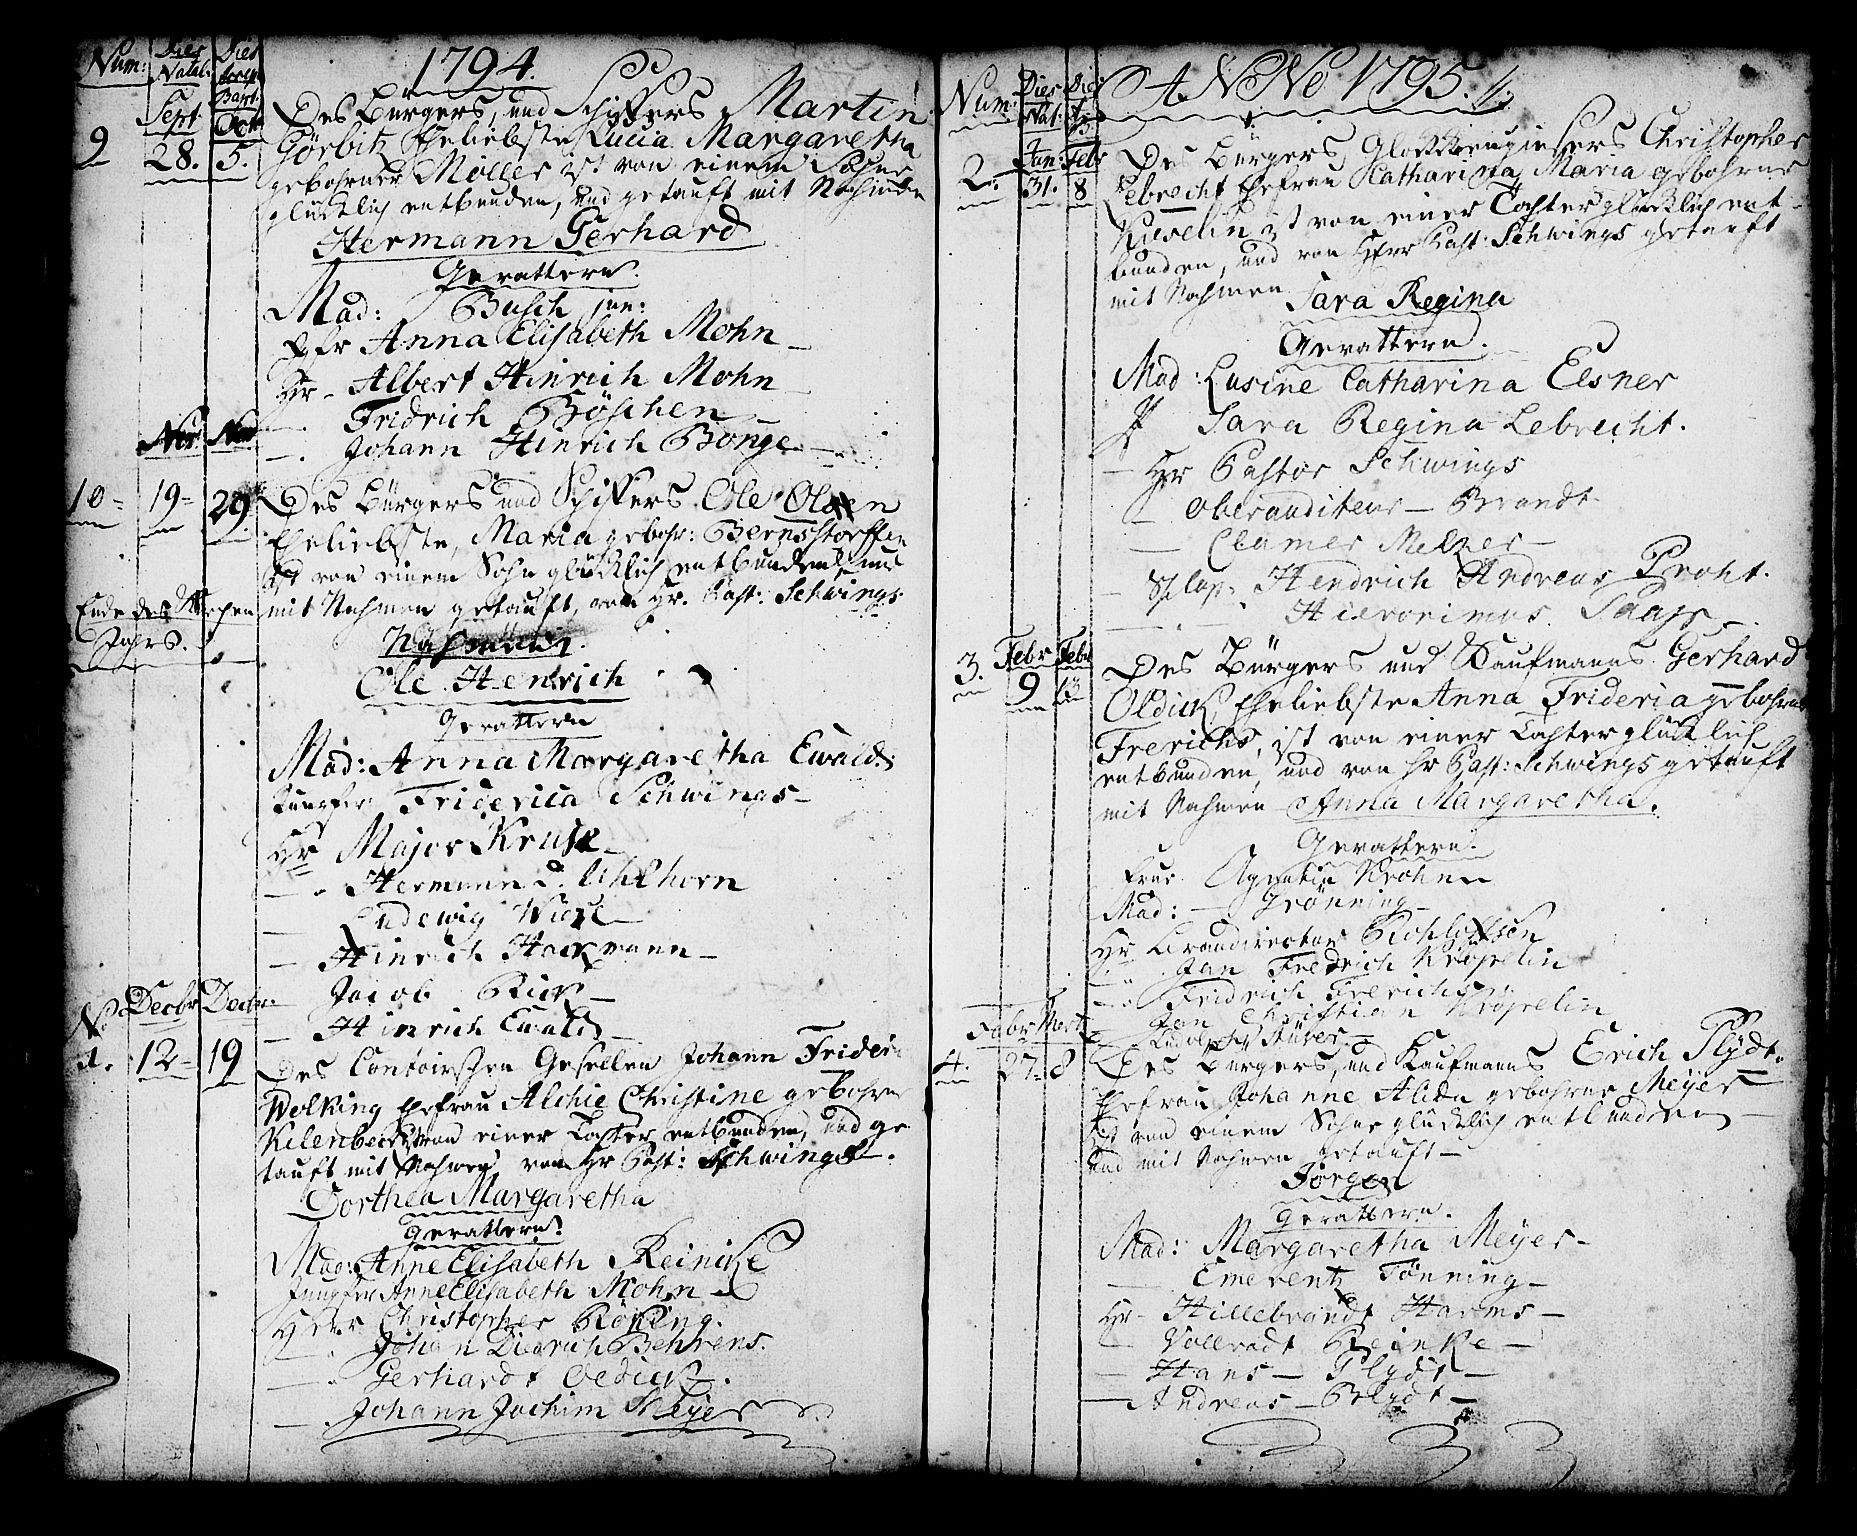 Num: Dies Natal: Dies
1794.
Sept
9 28. 5. Des Bürgers, und Schiffers Martin
Görbitz Eheliebste Lucia Margaretha
gebohrner Möller ist von einem Sohne
glücklich entbunden, und getauft mit Nahmen
Hermann Gerhard
Gevattern.
Mad: Busch jun:
Jfr Anna Elisabeth Mohn
Hr - Albert Hinrich Mohn
Fridrich Böschen
Johann Hinrich Bonge
Nov. Nov.
10 19 29 Des Bürgers und Schiffers Ole Olsen
Eheliebste, Maria gebohr: Bernstorffen
ist von einem Sohn glücklich entbunden, und
Ende des Kirchen mit Nahmen getauft, von Hr. Past: Schwings
Jahrs.
Ole Henrich
Gevattern
Mad: Anna Margaretha Ewald
Jungfer Friderica Schwings
Hr Major Kruse
Hermann D. Uhlhorn
Ludewig Wiese
Hinrich Hackmann
Jacob Rick
Hinrich Ewald
No Decbr Decbr.
1. 12 19 Des Contoirschen Gesellen Johann Frider
Wolking Ehefrau Alchie Christine gebohrn
von einer Tochter entbunden, und ge
tauft mit Nahmen von Hr Past: Schwings.
Dorthea Margaretha
Gevattern
Mad: Anne Elisabeth Reinike
Jungfer Anne Elisabeth Mohn
Herr Christopher Röping.
Johan Diedrich Behrens.
Gerhardt Oedick
Johann Jochim Meyer
Num: Dies Nat:
ANNO 1795.
Jan: Febr
2. 31. 8 Des Bürgers, Glockkengiesers Christopher
Lebrecht Ehefrau Catharina Maria gebohrne
ist von einer Tochter glücklich ent-
bunden, und von Herr Past: Schwings getauft
mit Nahmen Sara Regina
Gevattern.
Mad: Lusine Catharina Elsner
Sara Regina Lebrecht.
Hr Pastor Schwings
Oberauditeur Brandt
Clamer Melzer
Hendrich Andreas Proht.
Hieronimus
3. Febr Febr
9 Des Bürgers und Kaufmanns Gerhard
Oldick Eheliebste Anna Frideria gebohrne
Frerichs, ist von einer Tochter glücklich
entbunden, und von Hr Past: Schwings getauft
mit Nahmen Anna Margaretha.
Gevattern.
Frau Agneta Krohnn
Mad: Grönning
Hr
Jan Fredrich Kröpelin
Fridrich Frerichs
Jan Christian Kröpelin
Ludolph Stüver
Febr Mertz
4. 27 8 Des Bürgers, und Kaufmanns Erich Plydt
Ehefrau Johanne Alida gebohrne Meyer
ist von einem Sohne glücklich entbunden
und mit Nahmen getauft
Jörgen
Gevattern.
Mad: Margaretha Meyer
Emerentz Tönning
Hr Hillebrandt Harms
Vollradt Reinke
Hans Plydt
Andreas Plydt